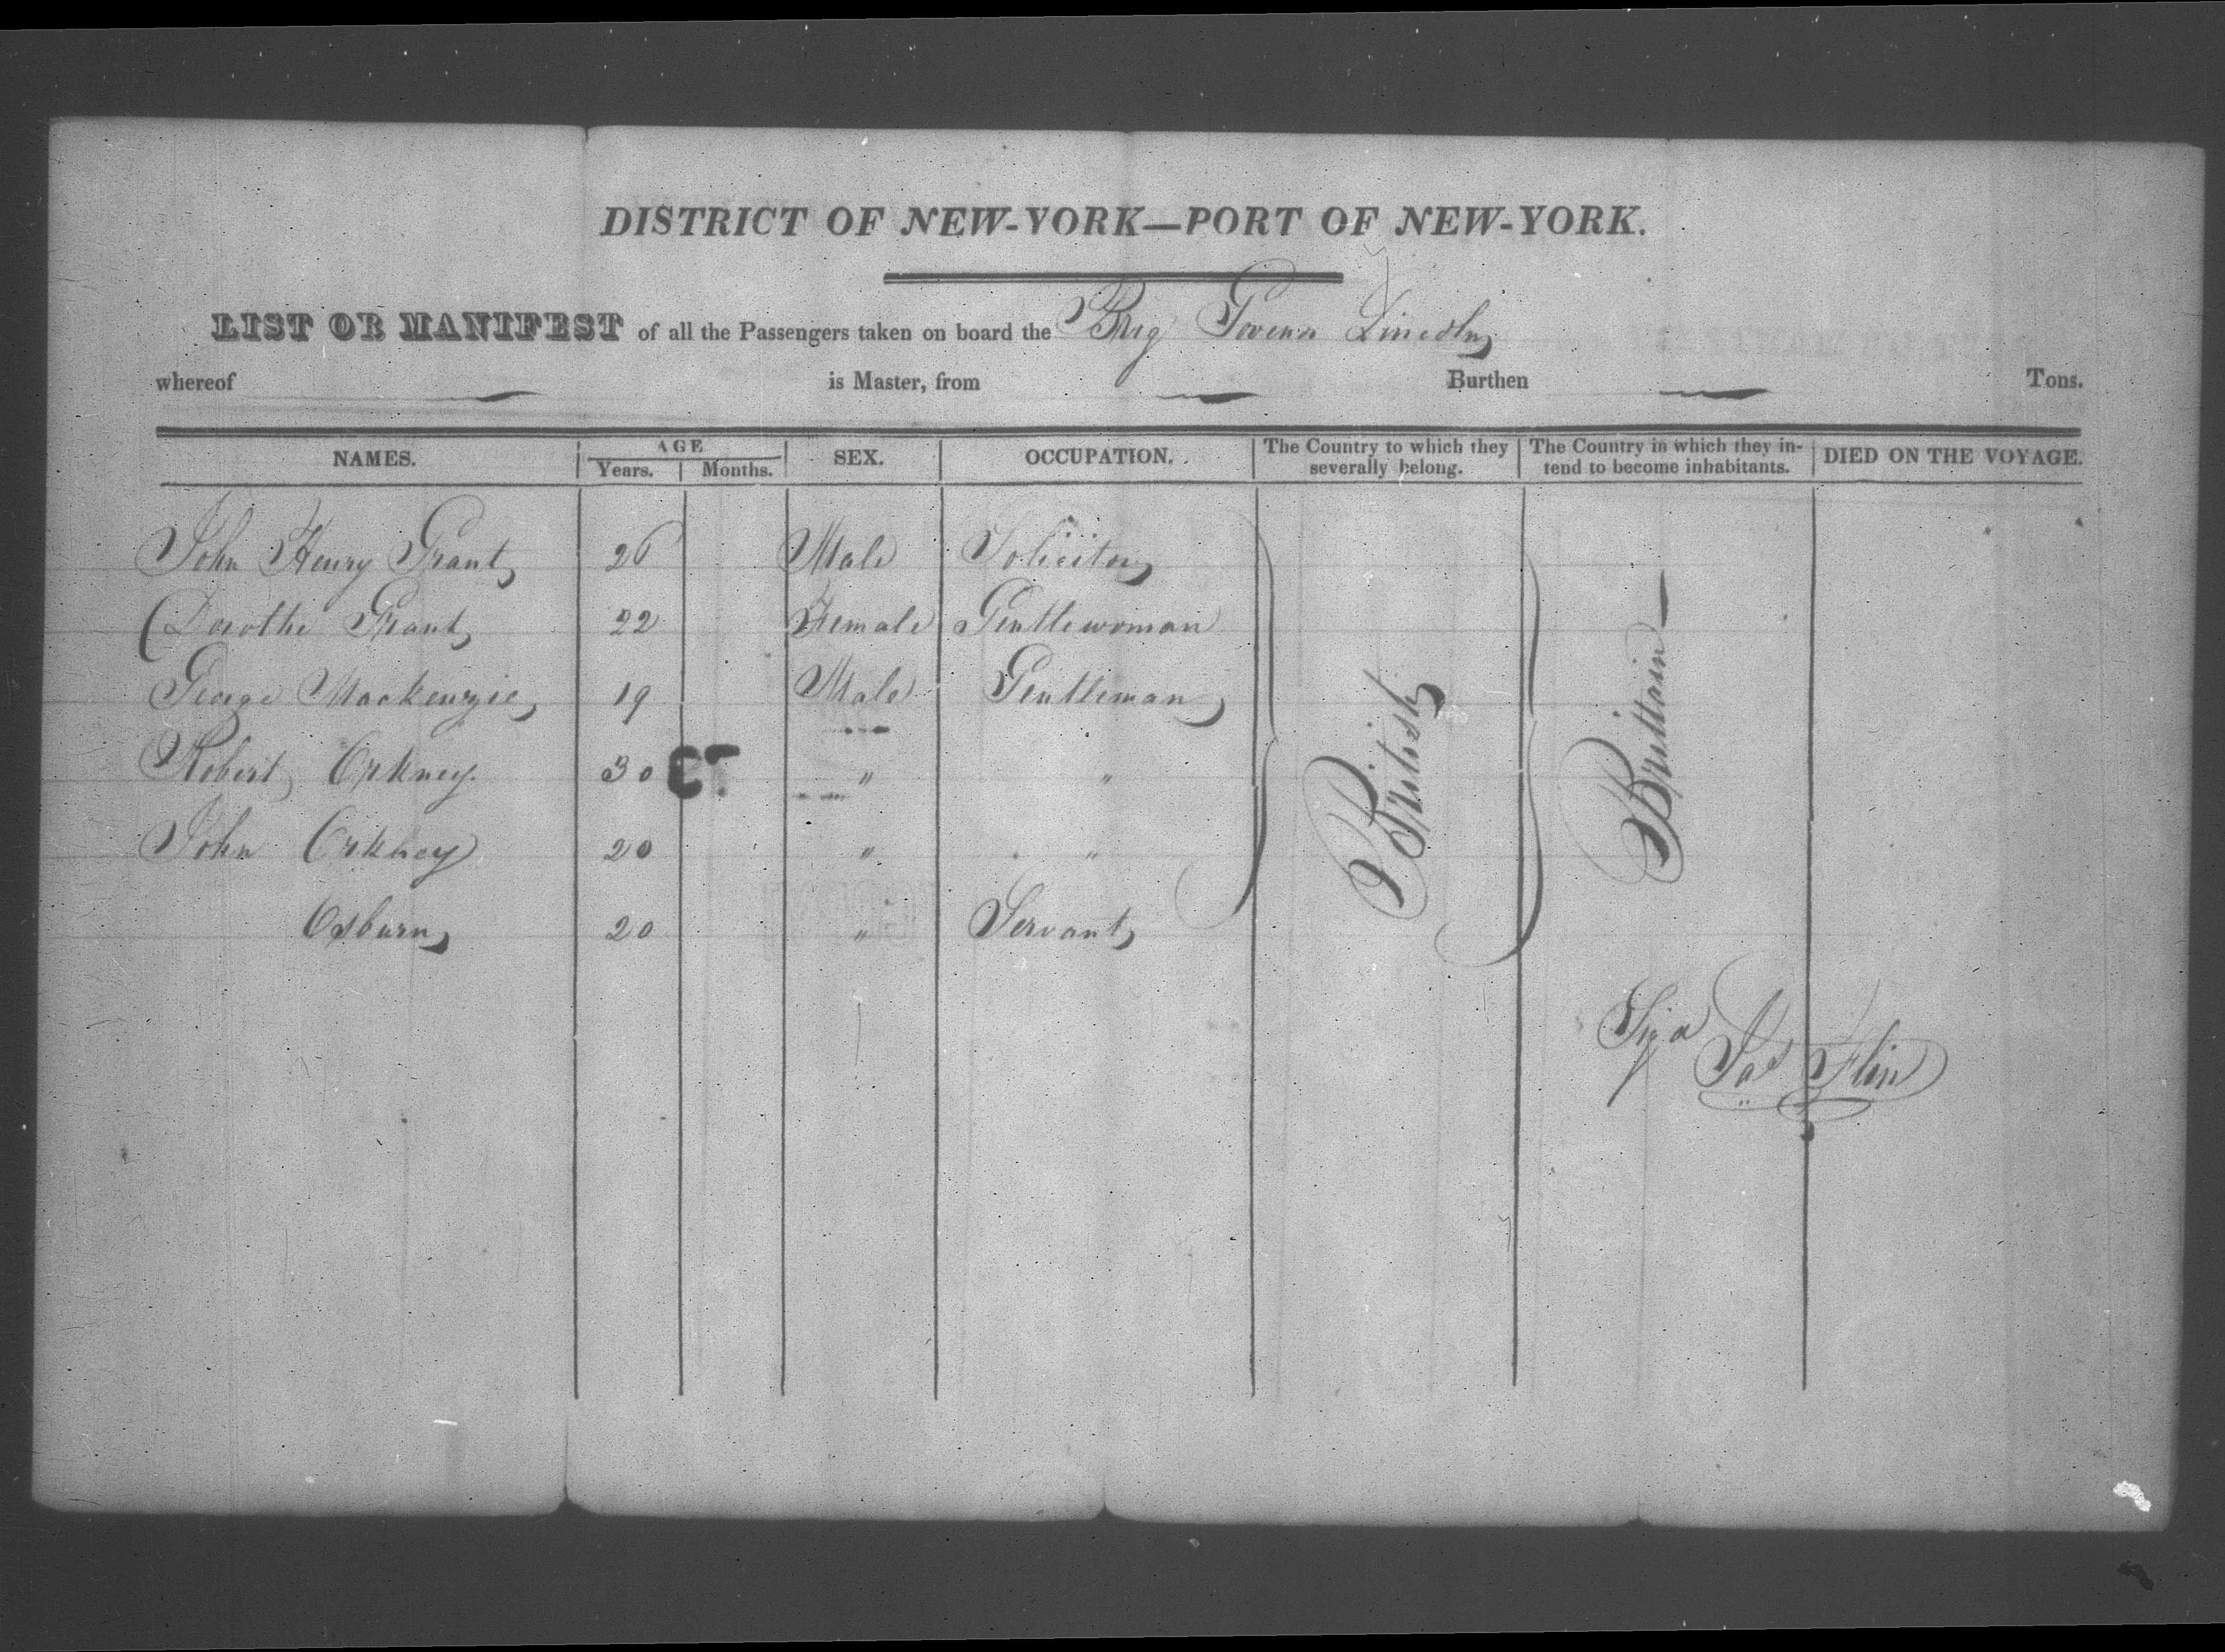 DISTRICT OF NEW-YORK—PORT OF NEW-YORK.
LIST OR MANIFEST of all the Passengers taken on board the Brig Govenor Lincoln
whereof — is Master, from — Burthen — Tons.
NAMES. AGE Years. Months. SEX. OCCUPATION. The Country to which they severally belong. The Country in which they intend to become inhabitants. DIED ON THE VOYAGE.
John Henry Grant 26 Male Solicitor
Dorothe Grant 22 Female Gentlewoman
George Mackenzie 19 Male Gentleman
Robert Orkney. 30 " "
John Orkney 20 " "
Osburn 20 " Servant
British
Brittain—
Jas Flin